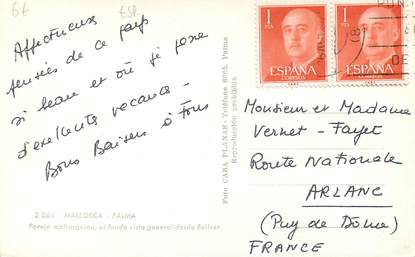 6f
658
Affectueuses
pensées de ce pays
si beau et où je passe
d'excellentes vacances -
Bons Baisers à Tous
2084 MALLORCA - PALMA
Pareja mallorquina, al fondo vista general desde Bellver
Foto CASA PLANAS - Teléfono Palma
Reproducción prohibida
1 PTA
ESPAÑA
CORREOS
1 PTA
ESPAÑA
CORREOS
Monsieur et Madame
Vernet - Fayet
Route Nationale
ARLANC
(Puy de Dôme)
FRANCE